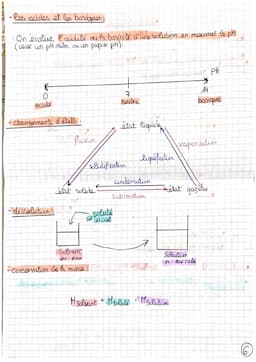 - Les acides et les basiques
- On évalue l'acidité ou la basicité d'une solution en mesurant le pH
(avec un pH mètre ou un papier pH).
pH
0 7 14
acide neutre basique
- changements d'états
état liquide
fusion vaporisation
solidification liquéfaction
condensation
état solide état gazeux
sublimation
- dissolution:
soluté
solvant solution
- conservation de la masse
M solvant + M soluté = M solution
6